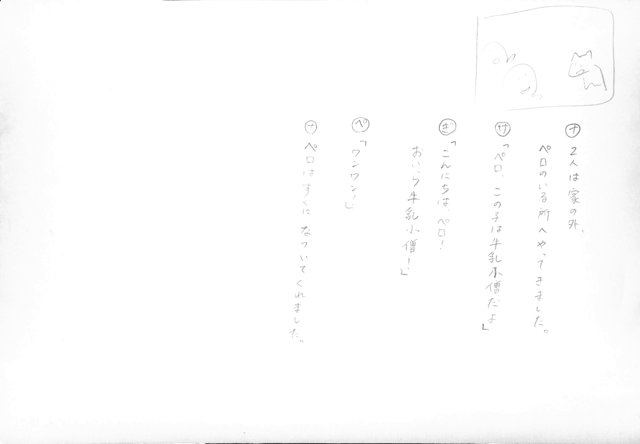 ナ 2人は家の外、
ペロのいる所へやってきました。
サ「ペロ、この子は牛乳小僧だよ」
ぎ「こんにちは、ペロ!
おいら牛乳小僧!」
ペ「ワンワン!」
ナ ペロはすぐになついてくれました。